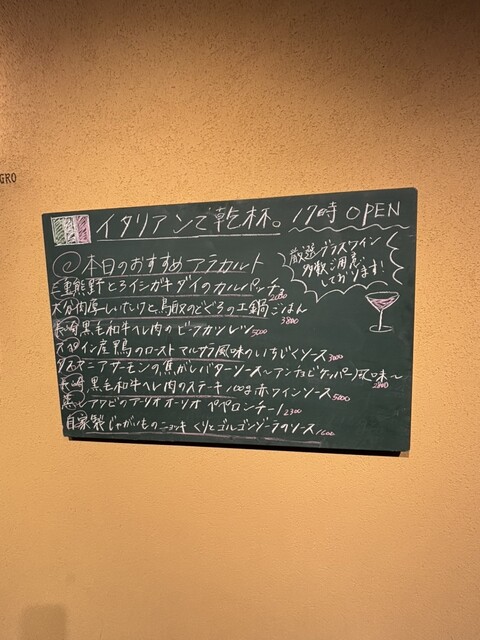 GRO
イタリアンで乾杯。17時 OPEN
本日のおすすめアラカルト
厳選グラスワイン
多数ご用意
しております!
三重熊野とろイシガキダイのカルパッチョ 2000
大分肉厚しいたけと鳥取のどぐろの土鍋ごはん 3800
長崎黒毛和牛ヘレ肉のビーフカツレツ 5000
スペイン産鴨のロースト マルサラ風味のいちじくソース 3000
タスマニアサーモンの焦がしバターソース〜アンチョビケッパー風味〜
長崎黒毛和牛ヘレ肉のステーキ100g赤ワインソース 5000
黒アワビのアーリオオーリオ ペペロンチーノ 2300
自家製じゃがいものニョッキ くりとゴルゴンゾーラのソース 1600